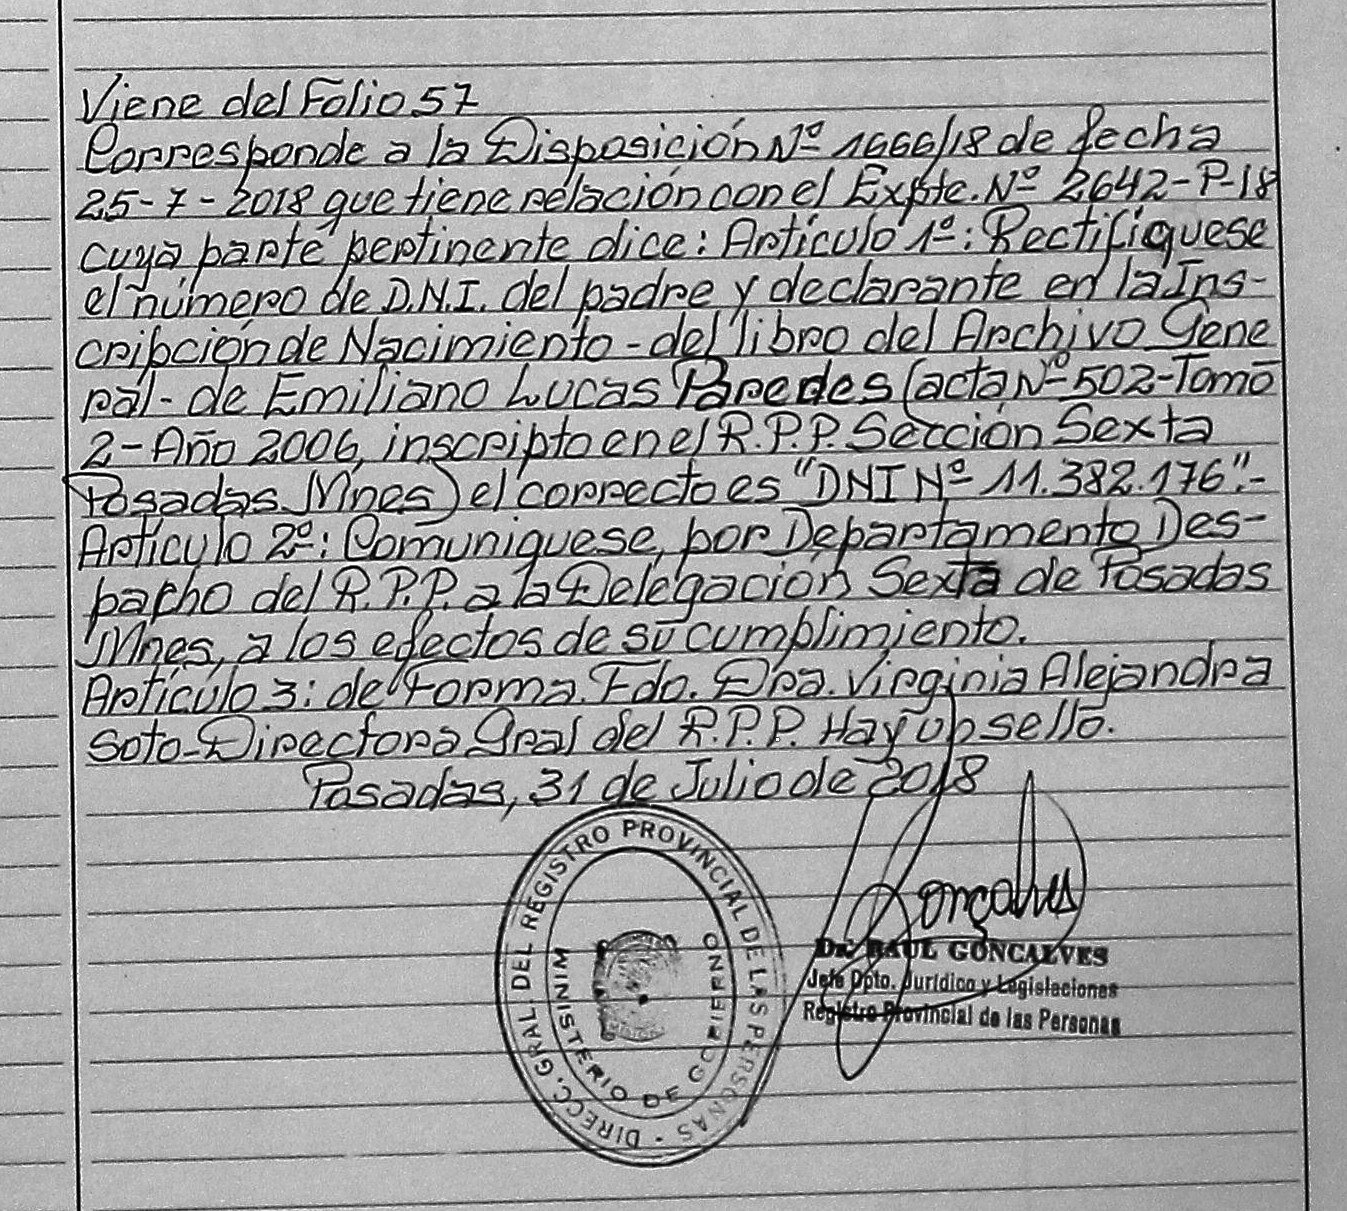 Viene del Folio 57
Corresponde a la Disposición Nº 1666/18 de fecha
25-7-2018 que tiene relación con el Expte. Nº 2642-P-18
cuya parte pertinente dice: Artículo 1º: Rectifíquese
el número de D.N.I. del padre y declarante en la Ins-
cripción de Nacimiento - del libro del Archivo Gene
ral - de Emiliano Lucas Paredes (acta Nº 502-Tomo
2-Año 2006, inscripto en el R.P.P. Sección Sexta
Posadas Mnes) el correcto es "DNI Nº 11.382.176".-
Artículo 2º: Comuníquese, por Departamento Des-
pacho del R.P.P. a la Delegación Sexta de Posadas
Mnes, a los efectos de su cumplimiento.
Artículo 3: de Forma. Fdo. Dra. Virginia Alejandra
Soto-Directora Gral del R.P.P. Hay un sello.
Posadas, 31 de Julio de 2018
DIRECC. GRAL. DEL REGISTRO PROVINCIAL DE LAS PERSONAS -
MINISTERIO DE GOBIERNO
Gonçalves
Dr. RAUL GONCALVES
Jefe Dpto. Jurídico y Legislaciones
Registro Provincial de las Personas